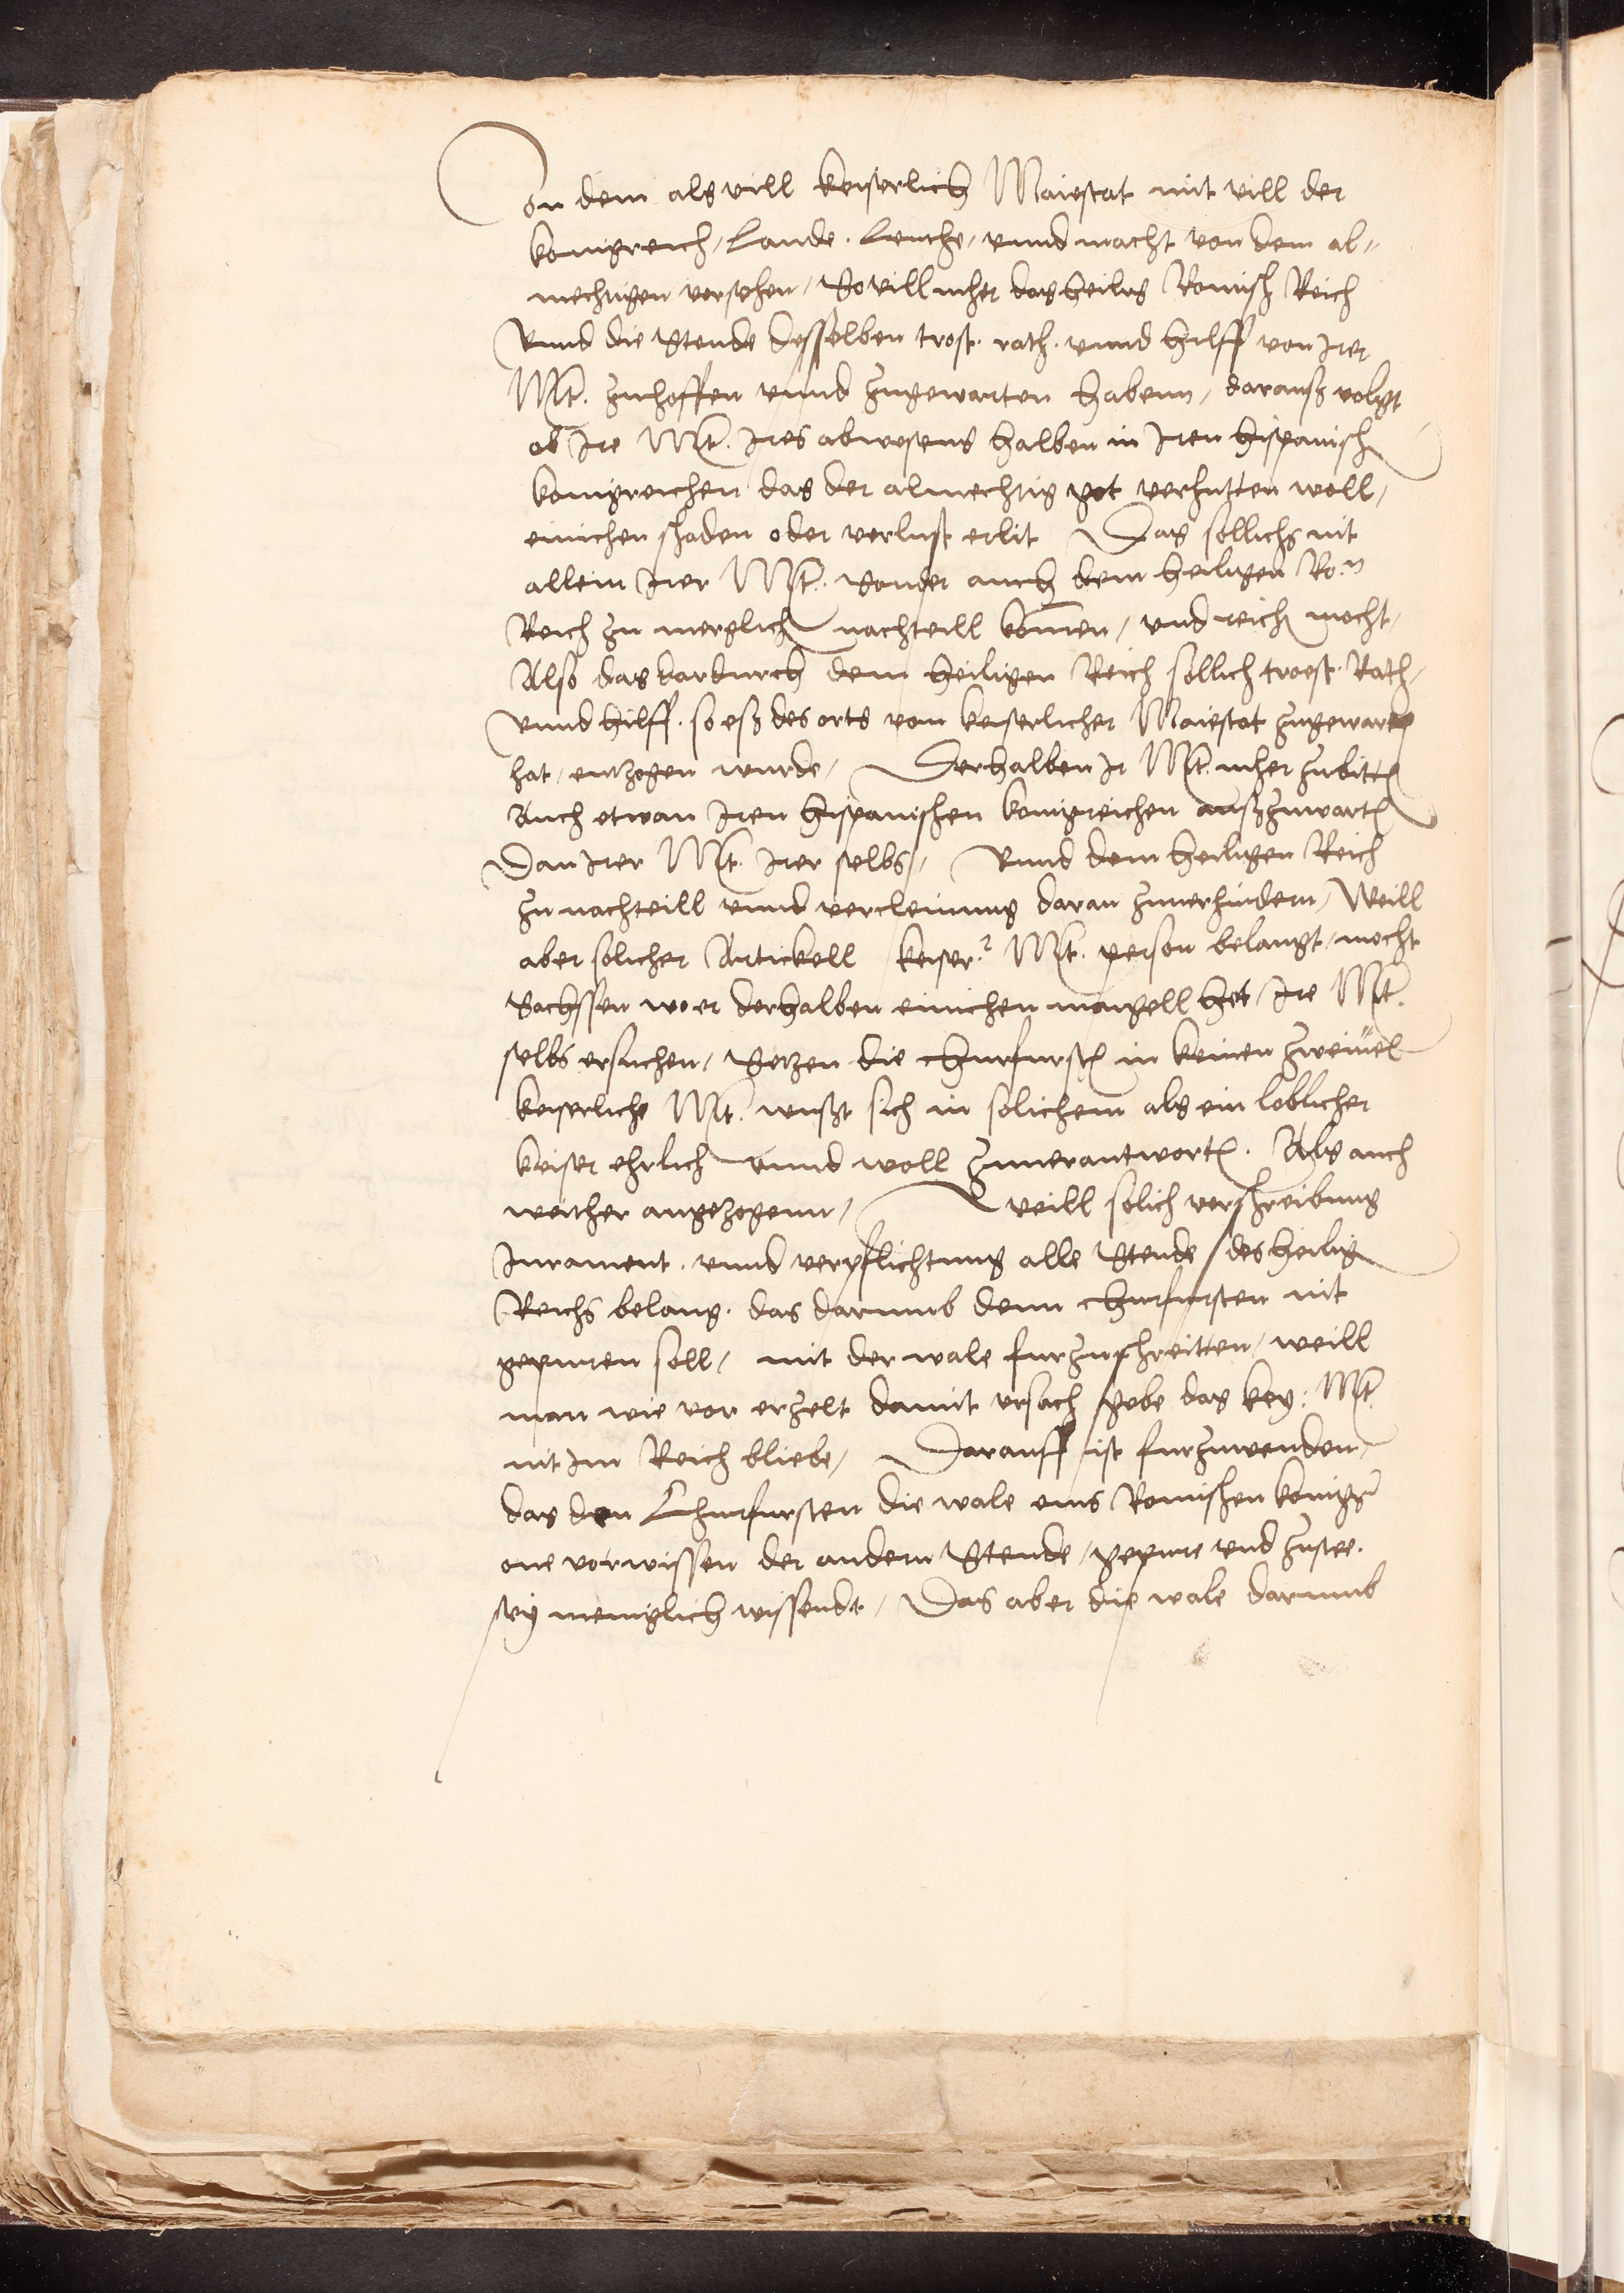 Von dem als vill keiserlich Maiestat mit vill der
konigreich / Lande . Leuthe / vnnd macht von dem al„
mechtigen versehen / So vill mher das heilig Romisch Reich
Vnnd die Stende desselben trost . rath . vnnd hilff von Irer
Mt. zuhoffen vnnd zugewarten habenn / darauß volgt
ob Ire Mt. Ires abwesens halben in Iren hispanisch
konigreichen das der almechtig got verhutten woll /
einichen schaden oder verlust erlit Das sollichs nit
allein Irer Mt. Sonder auch dem heiligen Ro.n
Reich zu mergklich nachteill komen / vnd reich mocht /
Also das dardurch dem heiligen Reich sollich troest . Rath /
vnnd hilff . so eß des orts vom keiserlicher Maiestat zugewarten
hat / entzogen wurde / Derhalben Ir Mt. mher zubitten
Auch etwan Iren hispanischen konigreichen ausszuwarten
Dan Irer Mt. Irer selbs / Vnnd dem heiligen Reich
zu nachteill vnnd vercleinung daran zuuerhindern / Weill
aber solicher Artickell keiser.r Mt. person belangt / mocht
Sachssen wo er derhalben einichen mangell het Ire Mt.
selbs ersuchen / Setzen die churfursten in keinen zweiuel
keiserliche Mt. wußt sich in solichem als ein loblicher
keiser ehrlich vnnd woll zuuerantworten . Als auch
weither angezogenn / weill solich verschreibung
Iurament . vnnd verpflichtung alle Stende des heilig
Reichs belang . das darumb denn churfursten nit
gepuren soll / mit der wale furzuschreitten / weill
man wie vor erzelt damit vrsach gebe das key: Mt
nit im Reich bliebe / Darauff ist furzuwenden /
das den Churfursten die wale eins Romischen konigs
one vorwissen der andern Stende / gepure vnd zustee .
sey meniglich wissendt / Das aber die wale darumb